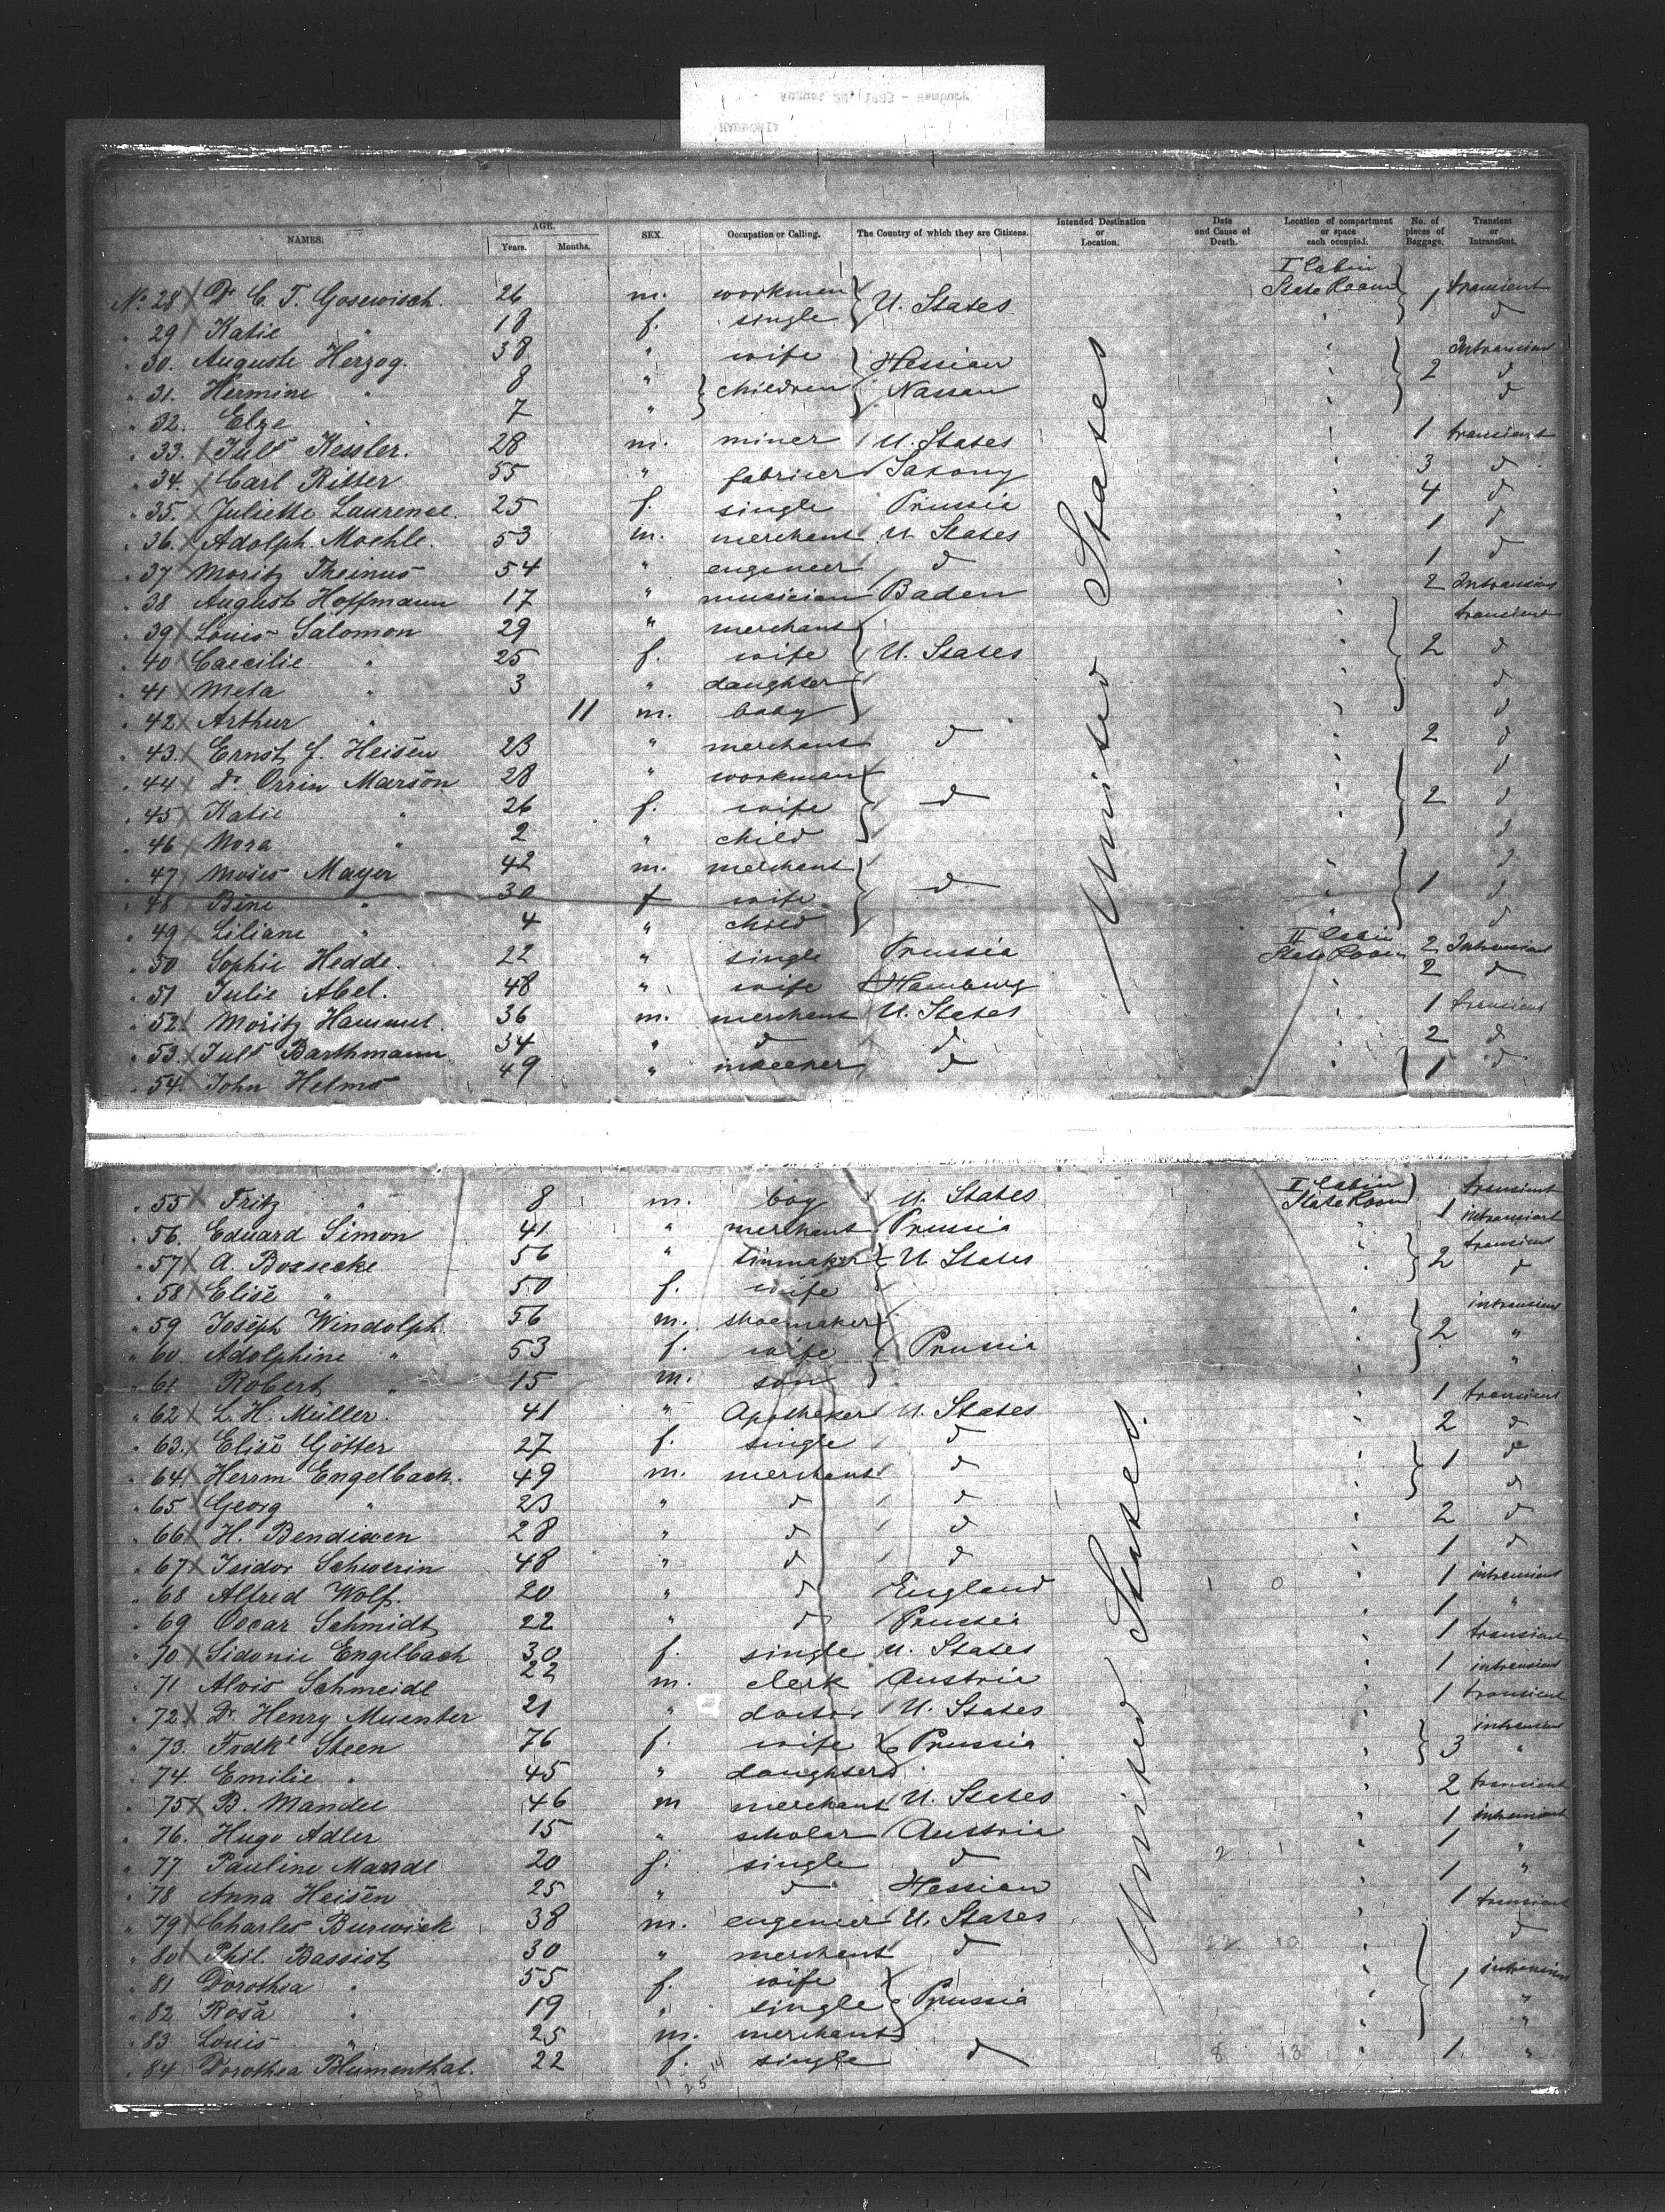 NAMES. AGE. Years. Months. SEX. Occupation or Calling. The Country of which they are Citizens. Intended Destination or Location. Date and Cause of Death. Location of compartment or space each occupied. No. of pieces of Baggage. Transient or Intransient.
No. 28 X Dr C. T. Gosewisch. 26 m. workmen } U. States I Cabin State Room } 1 transient
" 29 Katie " 18 f. single d
" 30. Auguste Herzog. 38 " wife } Hessian Intransient
" 31. Hermine " 8 " } children Nassau 2 d
" 32. Elze " 7 " d
" 33. X Juls Kessler. 28 m. miner U. States 1 transient
" 34. X Carl Ritter 55 " fabricer Saxony 3 d
" 35. X Juliette Laurence. 25 f. single Prussia 4 d
" 36. X Adolph. Moehle. 53 m. merchant U States 1 d
" 37 X Moritz Theinus 54 " engeneer d 1 d
" 38 August Hoffmann 17 " musician Baden 2 Intransient
" 39 X Louis Salomon 29 " merchant } transient
" 40 X Caecilie " 25 f. wife U. States 2 d
" 41 X Meta " 3 " daughter d
" 42 X Arthur " 11 m. baby d
" 43. X Ernst J. Heisen 23 " merchant d 2 d
" 44 X Dr. Orrin Marson 28 " workman } d
" 45 X Katie " 26 f. wife d 2 d
" 46 X Nora " 2 " child d
" 47 X Moses Mayer 42 m. merchant } d
" 48 X Bine " 30 f wife d 1 d
" 49 X Liliane " 4 " child d
" 50 Sophie Hedde. 22 " single Prussia II Cabin State Room 2 Intransient
" 51 Julie Abel. 48 " wife Hamburg 2 d
" 52 X Moritz Hammel. 36 m. merchant U. States 1 transient
" 53. X Juls Barthmann 34 " d d 2 d
" 54. X John Helms 49 " inkeeper d 1 d
United States
" 55 X Fritz " 8 m. boy U. States I Cabin State Room } transient
" 56. Eduard Simon 41 " merchant Prussia 1 intransient
" 57 X A. Bossecke 56 " tinmaker } U States 2 transient
" 58 X Elise " 50 f. wife d
" 59 Joseph Windolph 56 m. shoemaker } intransient
" 60. Adolphine " 53 f. wife Prussia 2 "
" 61 Robert " 15 m. son "
" 62 X L. H. Müller. 41 " Apotheker U. States 1 transient
" 63. X Elise Götter 27 f. single d 2 d
" 64 X Herrm Engelbach. 49 m. merchant d 1 d
" 65 X Georg " 23 " d d d
" 66 X H. Bendixen 28 " d d 2 d
" 67 X Isidor Schwerin 48 " d d 1 d
" 68 Alfred Wolf. 20 " d England 1 0 1 intransient
" 69 Oscar Schmidt 22 " d Prussia 1 "
" 70 X Sidonie Engelbach 30 f. single U. States 1 transient
" 71 Alois Schmeidl 22 m. clerk Austria 1 intransient
" 72 X Dr. Henry Muenter 21 " doctor U. States 1 transient
" 73. Frdke Steen 76 f. wife } Prussia intransient
" 74 Emilie " 45 " daughter 3 "
" 75 X B. Mandel 46 m merchant U. States 2 transient
" 76. Hugo Adler 15 " scholar Austria 1 intransient
" 77 Pauline Mandl 20 f. single d 2 1 1 "
" 78 Anna Heisen 25 " d Hessian 1 "
" 79 X Charles Burwick 38 m. engeneer U. States 1 transient
" 80 X Phil. Bassist 30 " merchant d 22 10 d
" 81 Dorothea " 55 f. wife } 1 intransient
" 82 Rosa " 19 " single Prussia "
" 83 Louis " 25 m. merchant "
" 84 Dorothea Blumenthal. 22 f. single d 8 13 1 "
United States.